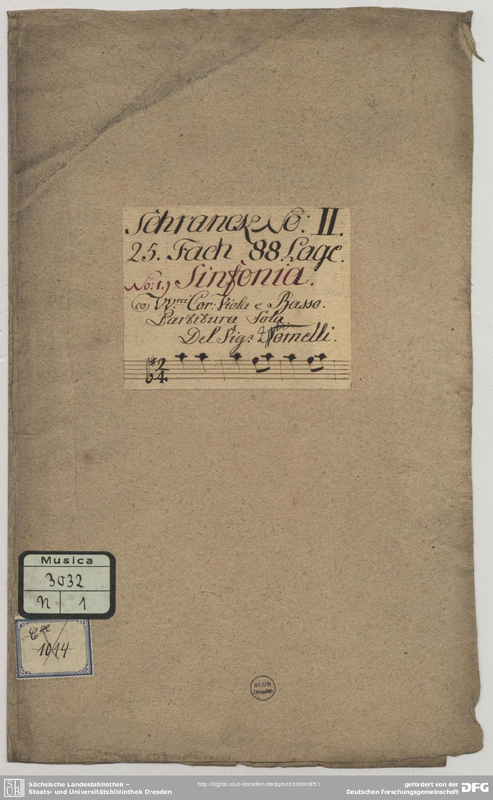 Schranck No: II.
25. Fach 88 Lage.
No: 1.) Sinfonia.
(co) VV.ni Cor: Viola e Basso.
Partitura Sola
Del Sig.r Jomelli.
2
4.
Musica
3032
N 1
1014
SLUB
Dresden
SLUB
Sächsische Landesbibliothek –
Staats- und Universitätsbibliothek Dresden
gefördert von der
Deutschen Forschungsgemeinschaft
DFG